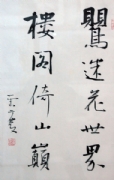 鶯迷花世界
樓閣倚山巔